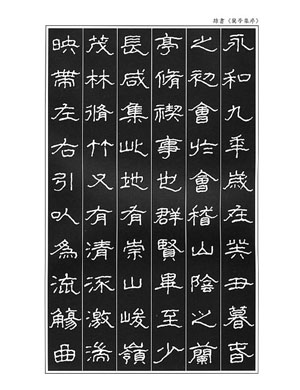 隸書《蘭亭集序》
永和九年歲在癸丑暮春
之初會於會稽山陰之蘭
亭脩禊事也群賢畢至少
長咸集此地有崇山峻嶺
茂林脩竹又有清流激湍
映帶左右引以為流觴曲